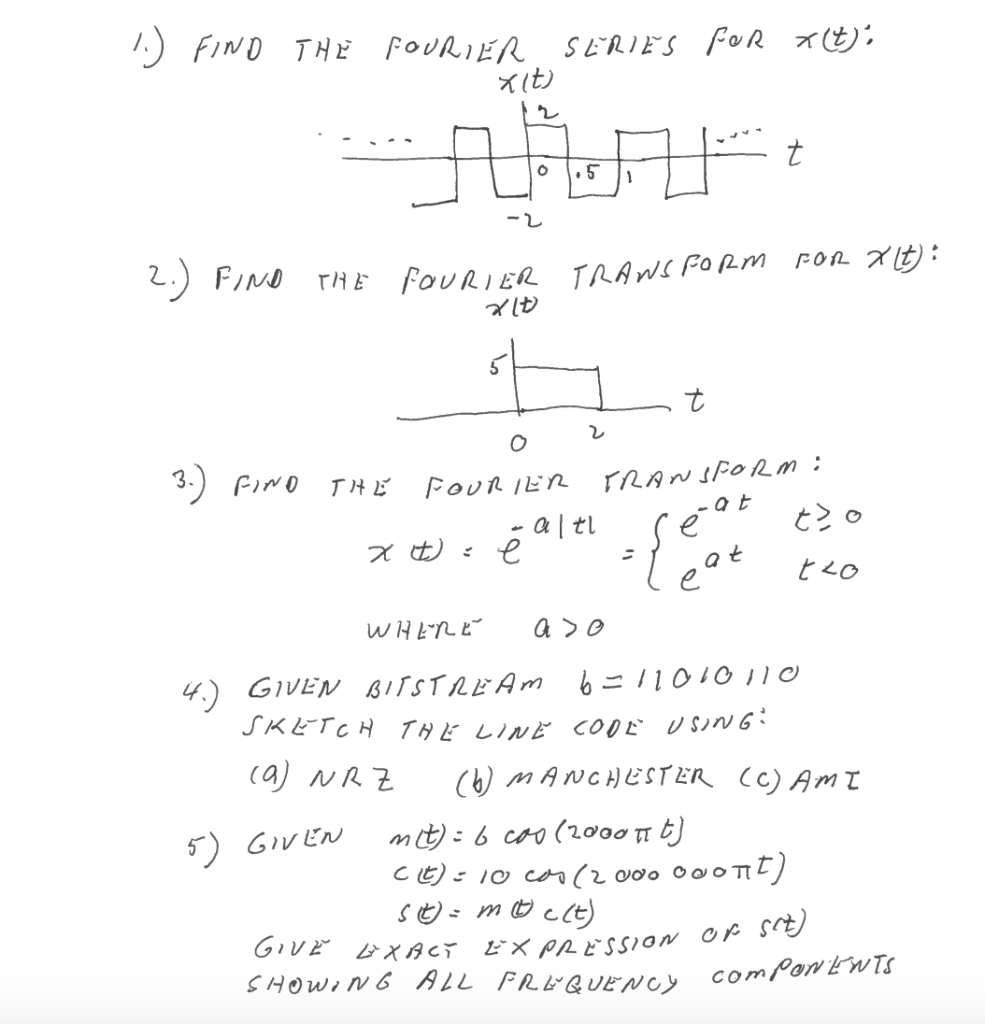 1.) FIND THE FOURIER SERIES FOR x(t):
x(t)
2
.... .... t
0 .5 1
-2
2.) FIND THE FOURIER TRANSFORM FOR x(t):
x(t)
5
t
0 2
3.) FIND THE FOURIER TRANSFORM:
x(t) = e^{-a|t|} = { e^{-at} t ≥ 0
e^{at} t < 0
WHERE a > 0
4.) GIVEN BITSTREAM b = 11010110
SKETCH THE LINE CODE USING:
(a) NRZ (b) MANCHESTER (c) AMI
5) GIVEN m(t) = 6 cos(2000πt)
c(t) = 10 cos(2000 000πt)
s(t) = m(t) c(t)
GIVE EXACT EXPRESSION OF s(t)
SHOWING ALL FREQUENCY COMPONENTS